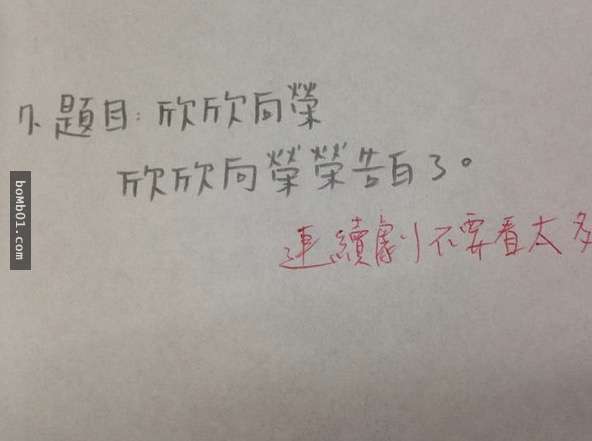 7. 題目：欣欣向榮
欣欣向榮榮告白了。
連續劇不要看太多
boMb01.com